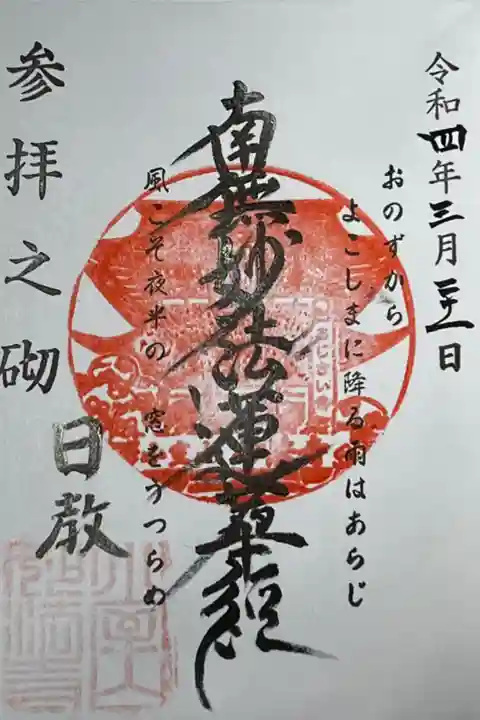 令和四年三月二十一日
おのずから
よこしまに降る雨はあらじ
南無妙法蓮華経
風こそ夜半の
窓をうつらめ
参拝之砌
日教